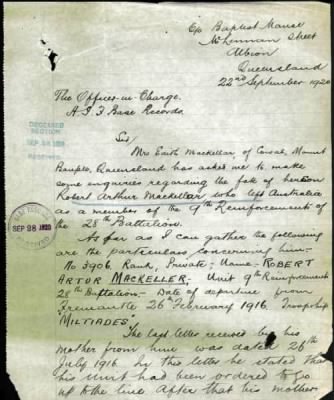 c/o Baptist Manse
McLennan Street
Albion
Queensland
22nd September 1920
The Officer-in-Charge.
A.I.F Base Records.
DECEASED
SECTION
SEP 28 1920
RECEIVED
Sir
Mrs Edith Mackellar, of Mount
Bauple, Queensland has asked me to make
some enquiries regarding the fate of her son
Robert Arthur Mackellar who left Australia
as a member of the 9th Reinforcements of
the 28th Battalion.
SEP 28 1920
As far as I can gather the following
are the particulars concerning him:-
No 3906. Rank, Private. Name- ROBERT
ARTUR MACKELLER. Unit 9th Reinforcements
28th Battalion- Date of departure from
Fremantle 26th February 1916. Troopship
"MILTIADES"
The last letter received by his
mother from him was dated 26th
July 1916. In this letter he stated that
his Unit had been ordered to go
up to the line. After that his mother